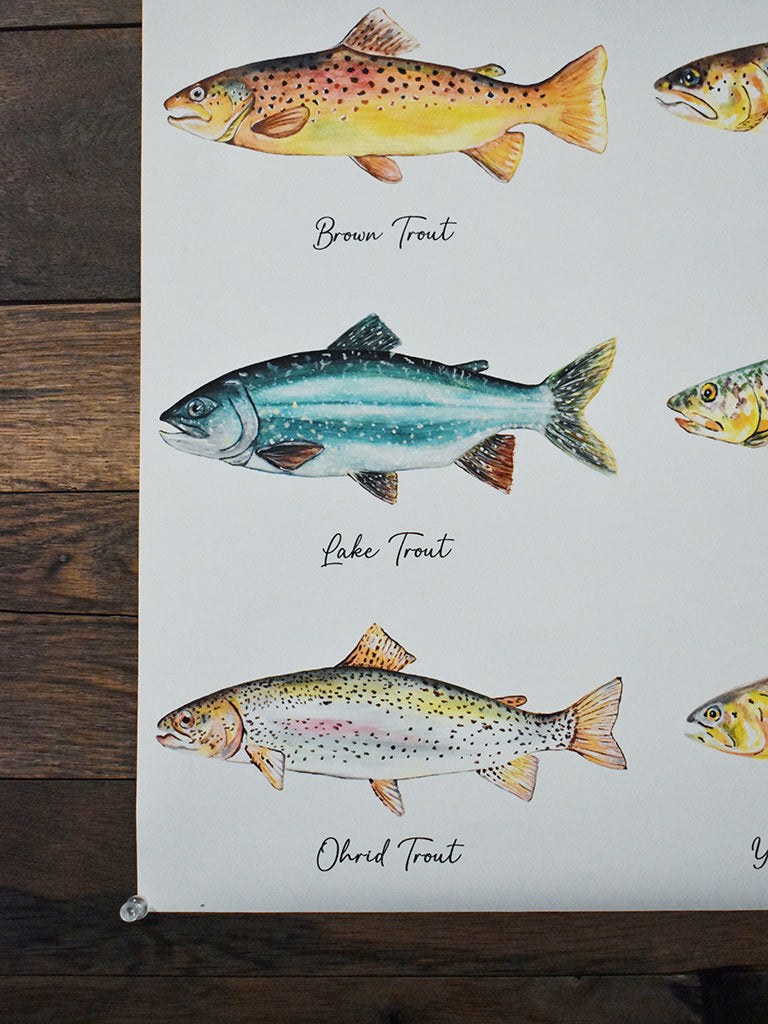 Brown Trout
Lake Trout
Ohrid Trout